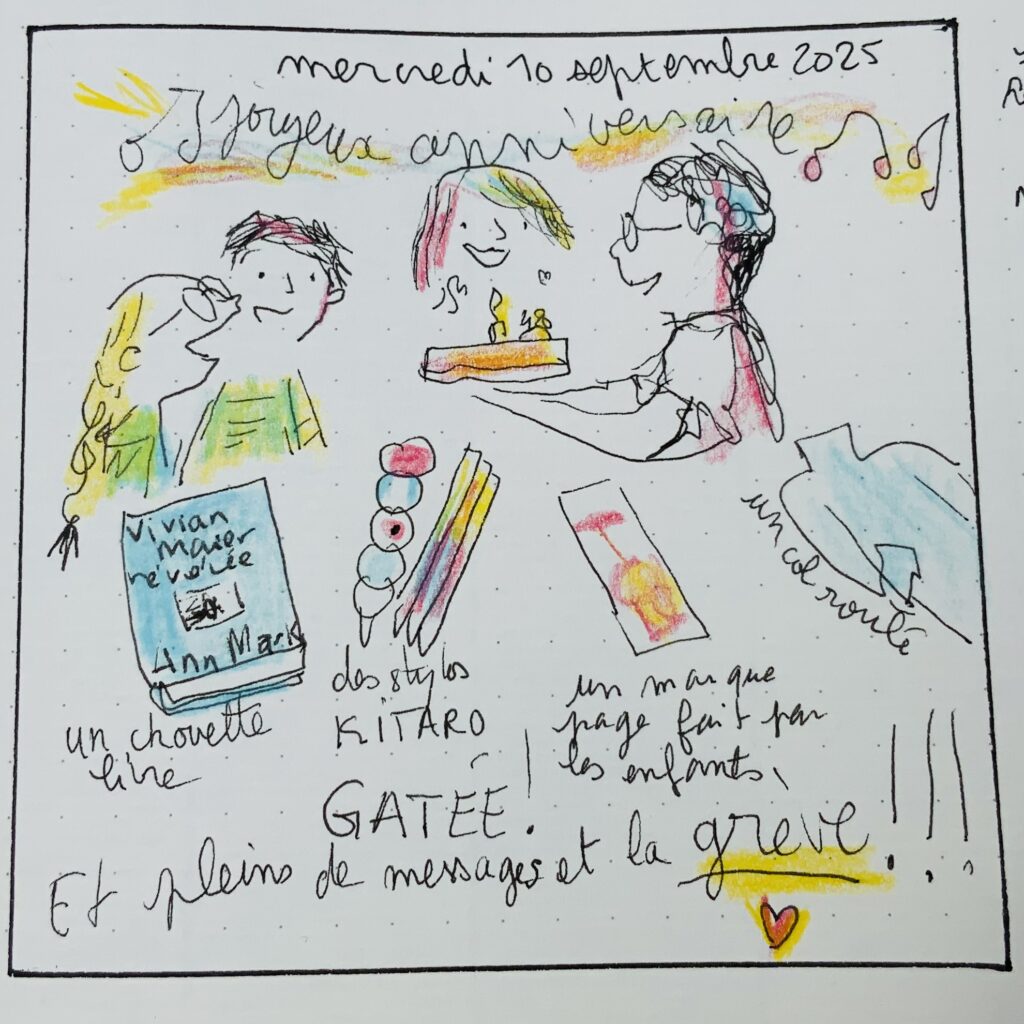 mercredi 10 septembre 2025
joyeux anniversaire
48
Vivian
Maier
révélée
Ann Mark
un chouette
livre
des stylos
KITARO
un marque
page fait par
les enfants
un col roulé
GATÉE !
Et pleins de messages et la grève !!!!